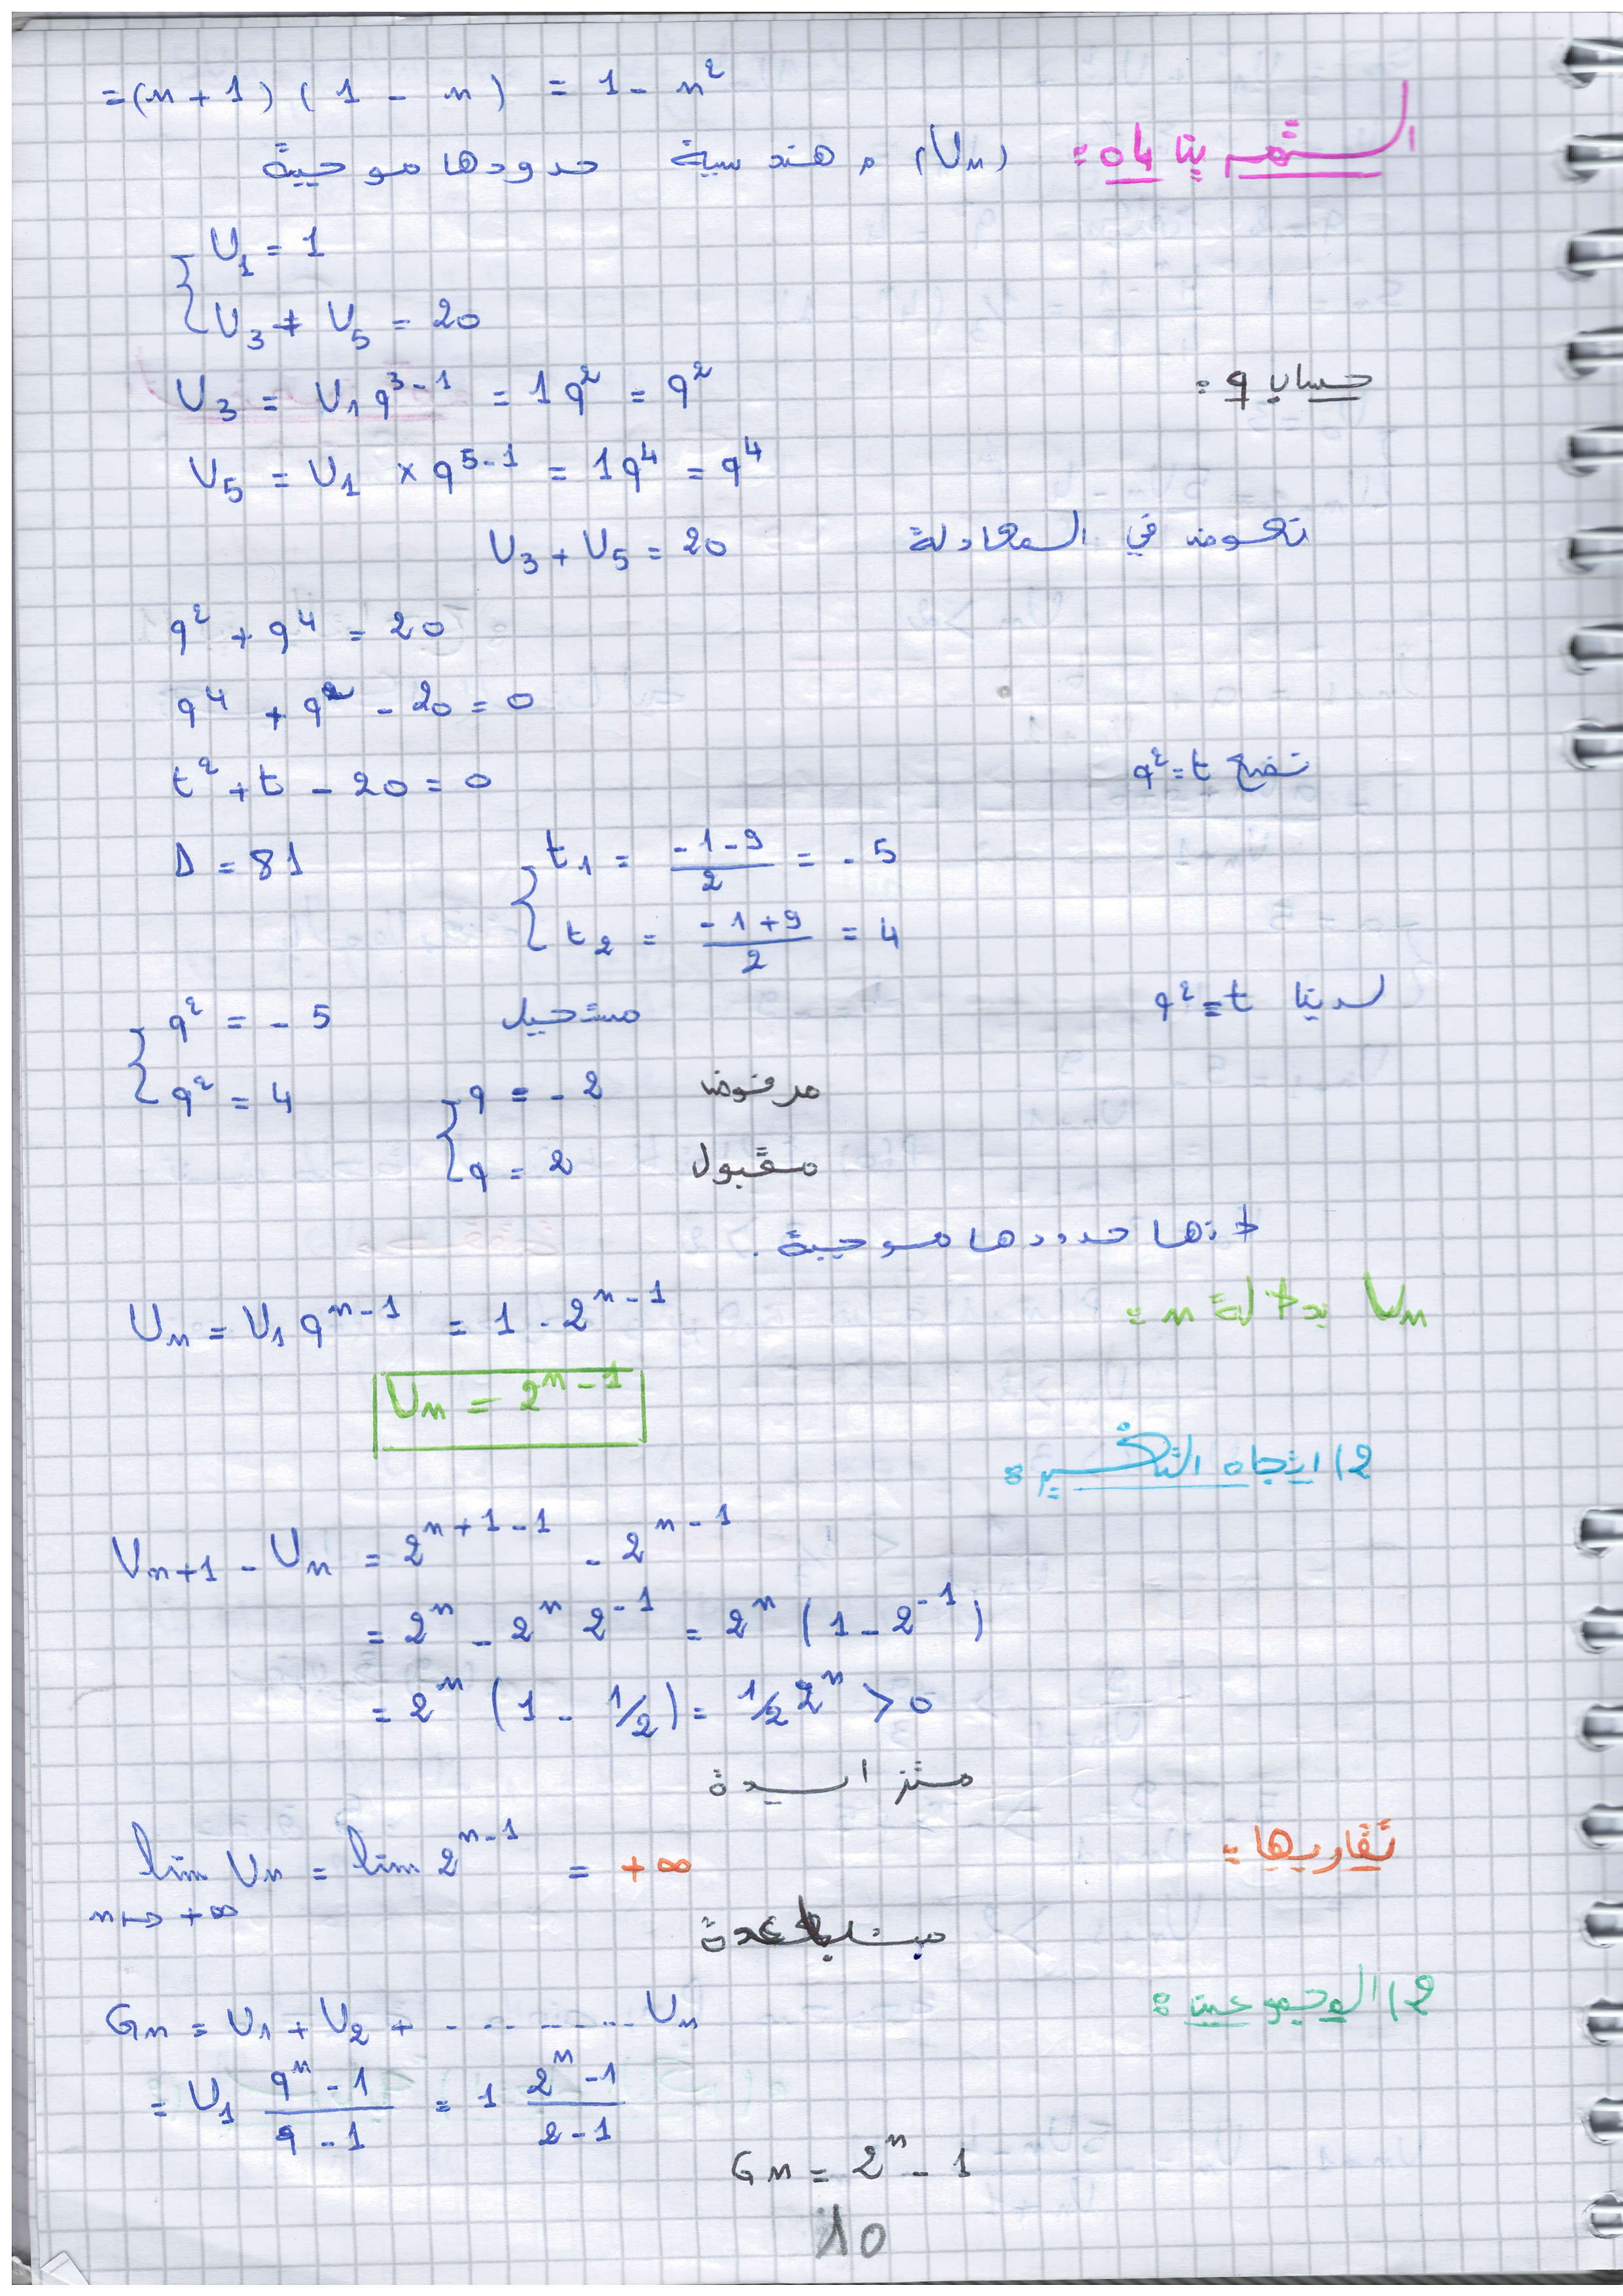 =(n+1)(1-n) = 1-n²
التمرين 04: (Un) هندسية حدودها موجبة
U1 = 1
U3 + U5 = 20
حساب q:
U3 = U1 q^(3-1) = 1q² = q²
U5 = U1 × q^(5-1) = 1q⁴ = q⁴
نعوض في المعادلة U3 + U5 = 20
q² + q⁴ = 20
q⁴ + q² - 20 = 0
نضع q² = t
t² + t - 20 = 0
Δ = 81
t1 = (-1-9)/2 = -5
t2 = (-1+9)/2 = 4
لدينا q² = t
q² = -5 مستحيل
q² = 4
q = -2 مرفوض
q = 2 مقبول
لأنها حدودها موجبة.
Un بدلالة n:
Un = U1 q^(n-1) = 1 · 2^(n-1)
Un = 2^(n-1)
2) اتجاه التغير:
Un+1 - Un = 2^(n+1-1) - 2^(n-1)
= 2^n - 2^n 2^-1 = 2^n (1 - 2^-1)
= 2^n (1 - 1/2) = 1/2 2^n > 0
متزايدة
تقاربها:
lim Un = lim 2^(n-1) = +∞
n→+∞
متباعدة
2) المجموعين:
Gn = U1 + U2 + .......... Un
= U1 (q^n - 1)/(q - 1) = 1 (2^n - 1)/(2 - 1)
Gn = 2^n - 1
10